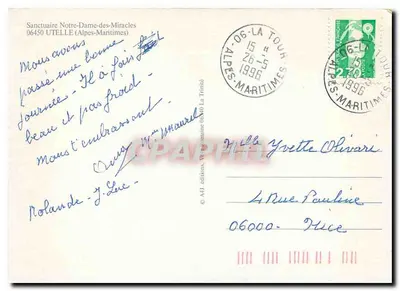 Sanctuaire Notre-Dame-des-Miracles
06450 UTELLE (Alpes-Maritimes)
Nous avons
passé une bonne
journée - Il a fait
beau et pas froid -
Nous t'embrassons
Rolande - J. Luc
06-LA TOUR
15 H
26-5
1996
ALPES-MARITIMES
06-LA TOUR
15
1996
ALPES-MARITIMES
Melle Yvette Olivari
4 Rue Pauline
06000 - Nice